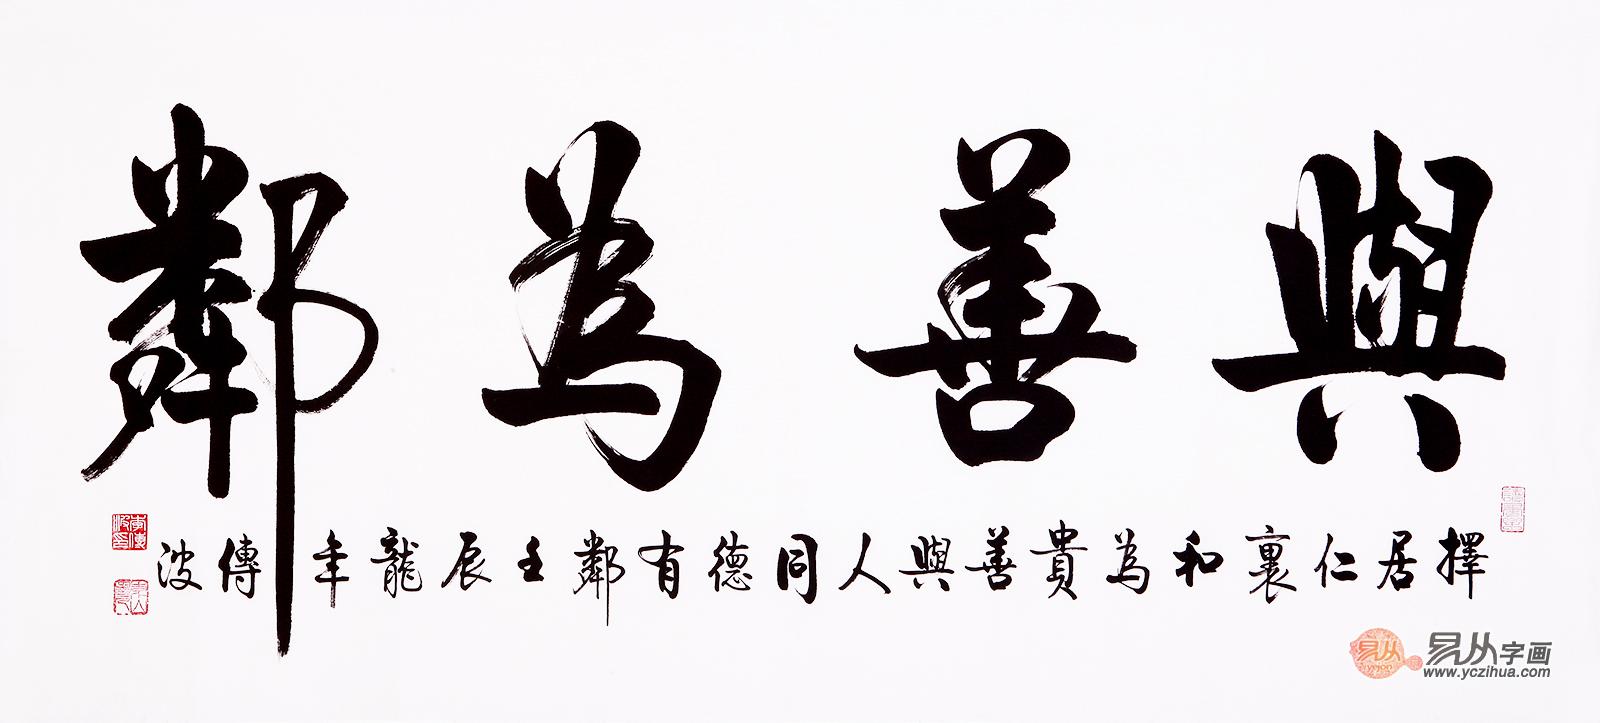 與善為鄰
擇居仁裏和為貴善與人同德有鄰壬辰龍年傳波
易从
yczihua
易从字画
www.yczihua.com